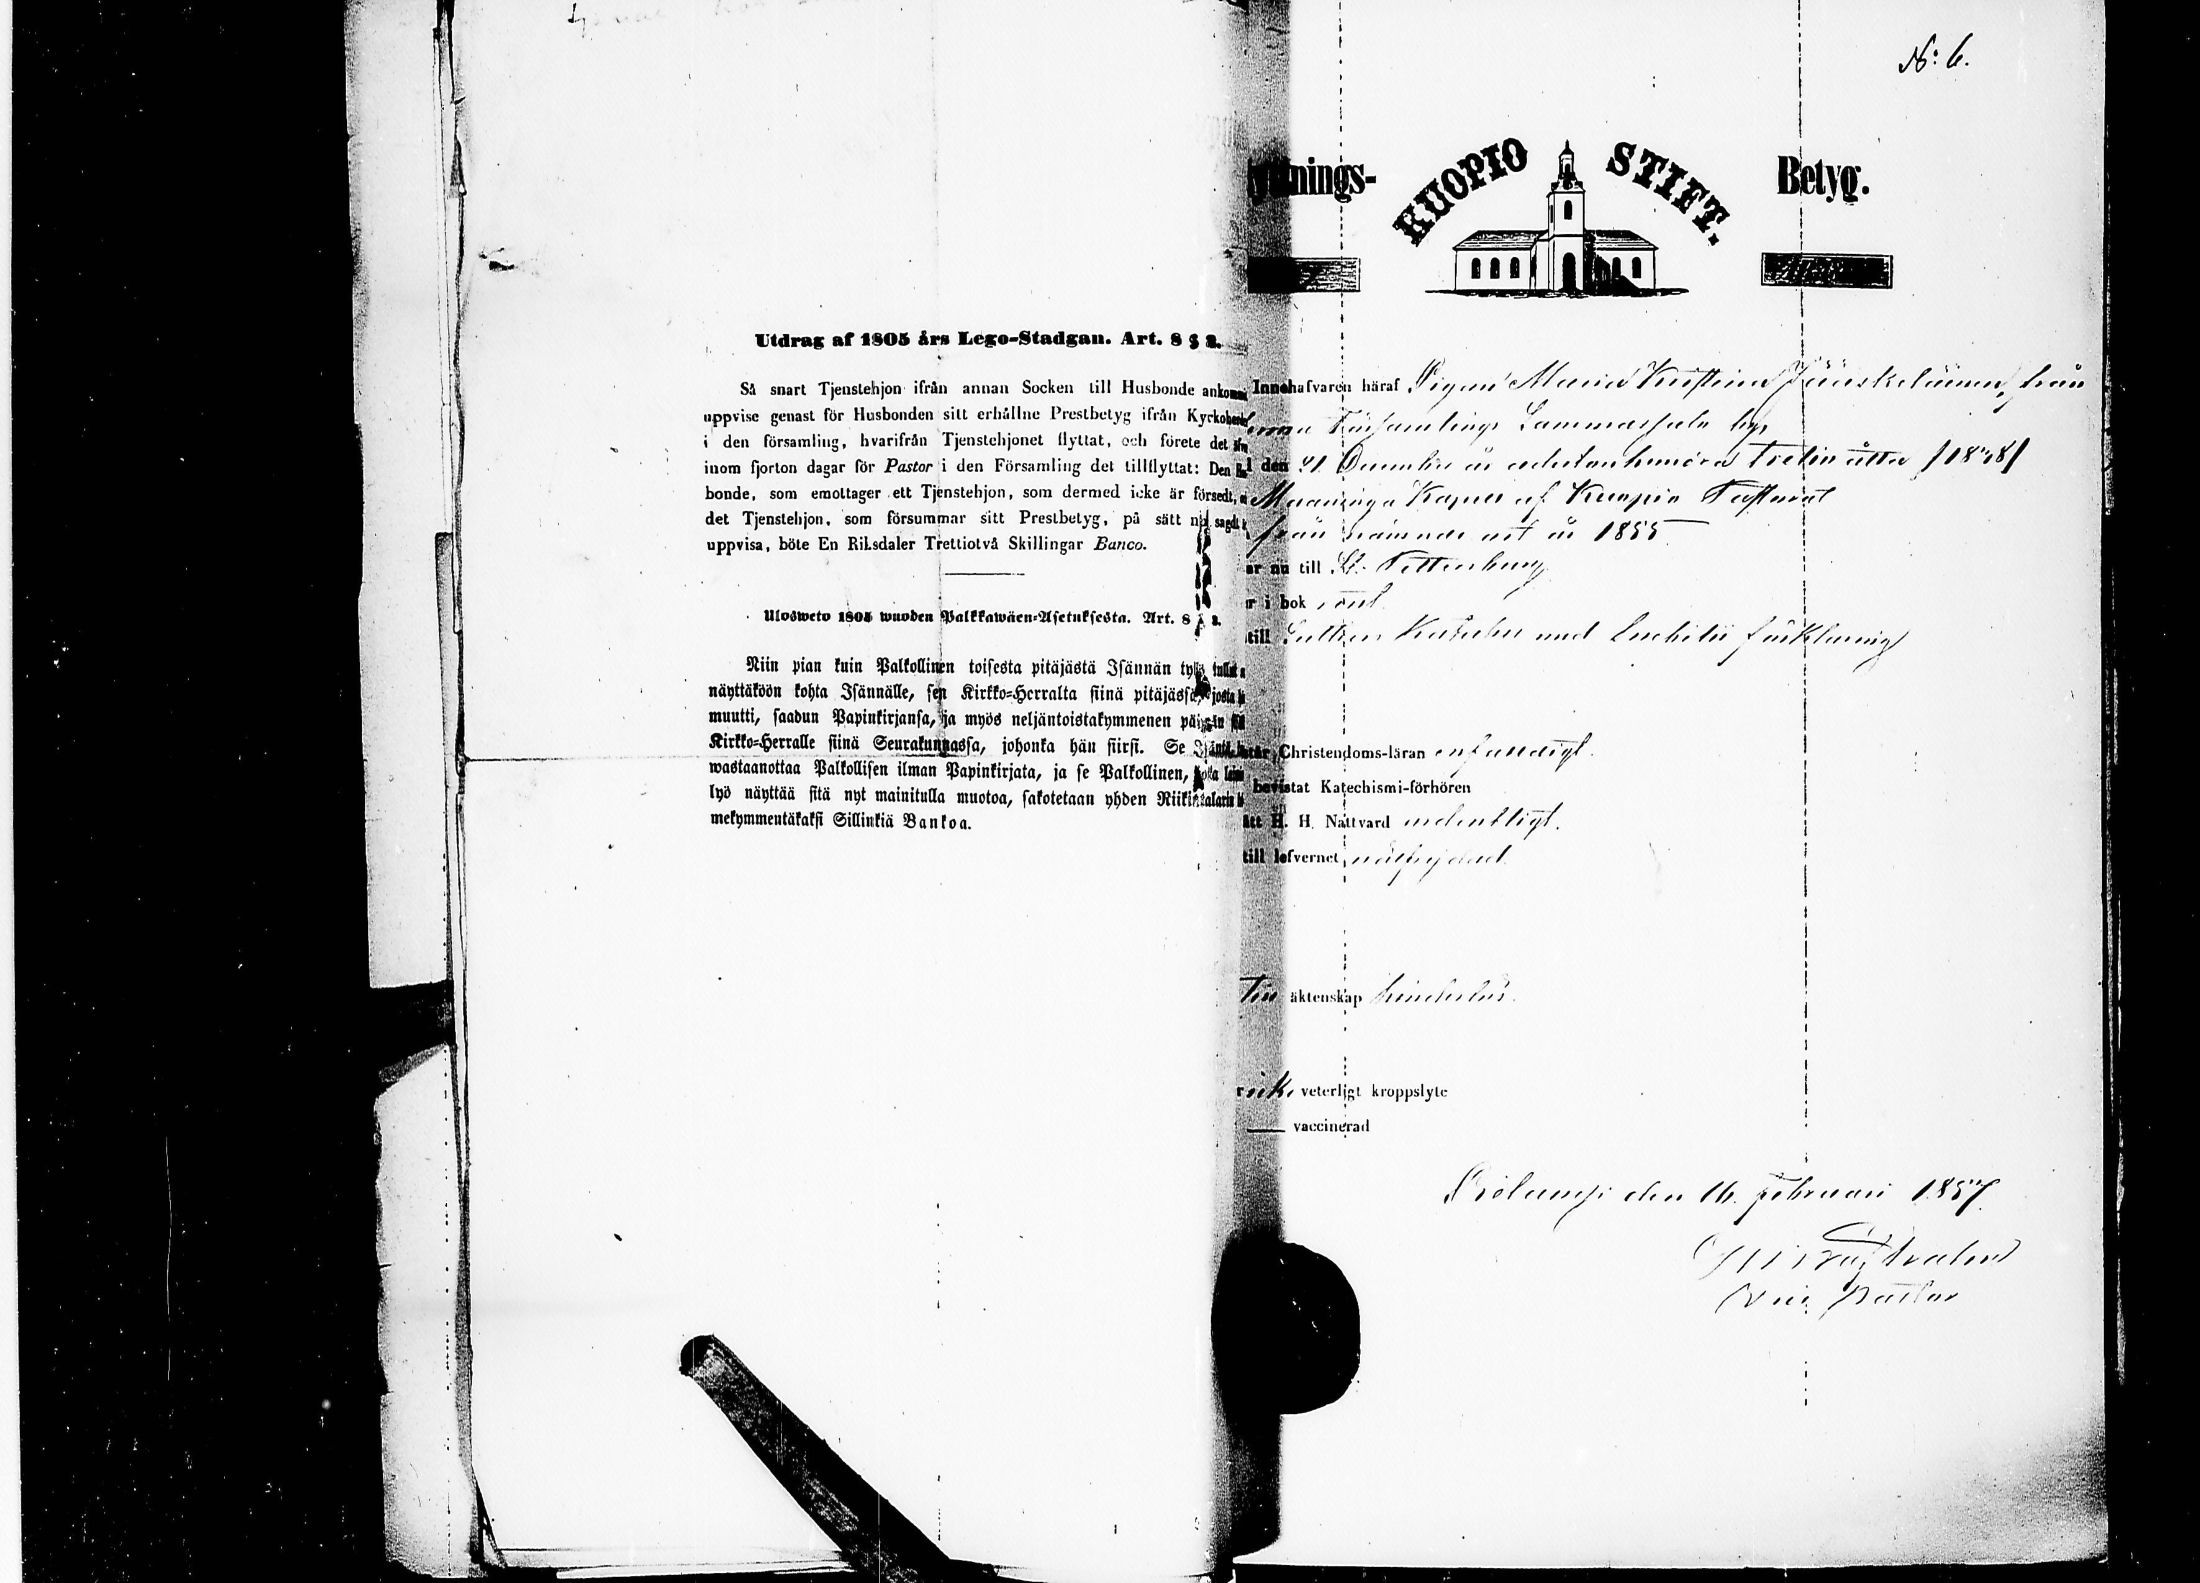 Utdrag af 1805 års Lego-Stadgan. Art. 8 § 2.
Så snart Tjenstehjon ifrån annan Socken till Husbonde
uppvise genast för Husbonden sitt erhållne Prestbetyg ifrån
i den församling, hvarifrån Tjenstehjonet flyttat, och förete det
inom fjorton dagar för Pastor i den Församling det tillflyttat: Den
bonde, som emottager ett Tjenstehjon, som dermed icke är försedt,
det Tjenstehjon, som försummar sitt Prestbetyg, på sätt nu sagdt
uppvisa, böte En Riksdaler Trettiotvå Skillingar Banco.
Ulosweto 1805 wuoden Palkkawäen-Asetuksesta. Art. 8 § 2.
Niin pian kuin Palkollinen toisesta pitäjästä Isännän tykö tullut
näyttäköön kohta Isännälle, sen Kirkko-Herralta siinä pitäjässä, josta
muutti, saadun Papinkirjansa, ja myös neljäntoistakymmenen päiwän
Kirkko-Herralle siinä Seurakunnassa, johonka hän siirsi. Se
wastaanottaa Palkollisen ilman Papinkirjata, ja se Palkollinen, joka
lyö näyttää sitä nyt mainitulla muotoa, sakotetaan yhden Riikintalarin
mekymmentäkaksi Sillinkiä Bankoa.
N:o 6.
nings- KUOPIO STIFT. Betyg.
Innehafvaren häraf Pigan Maria Kristina Jääskeläinen, från
Församlings Lammasjala by,
den 21 December år adertonhundra Tretio åtta /1838/
Maaninga Kapell af Kuopio Pastorat
från nämnde ort år 1855
nu till St. Pettersburg
i bok rent
till Luthers Katekes med Luthers förklaring
Christendoms-läran
bevistat Katechismi-förhören
H. H. Nattvard ordentligt.
till lefvernet
Till äktenskap hinderlös.
veterligt kroppslyte
vaccinerad
den 16. Februari 1857.
Vice Pastor